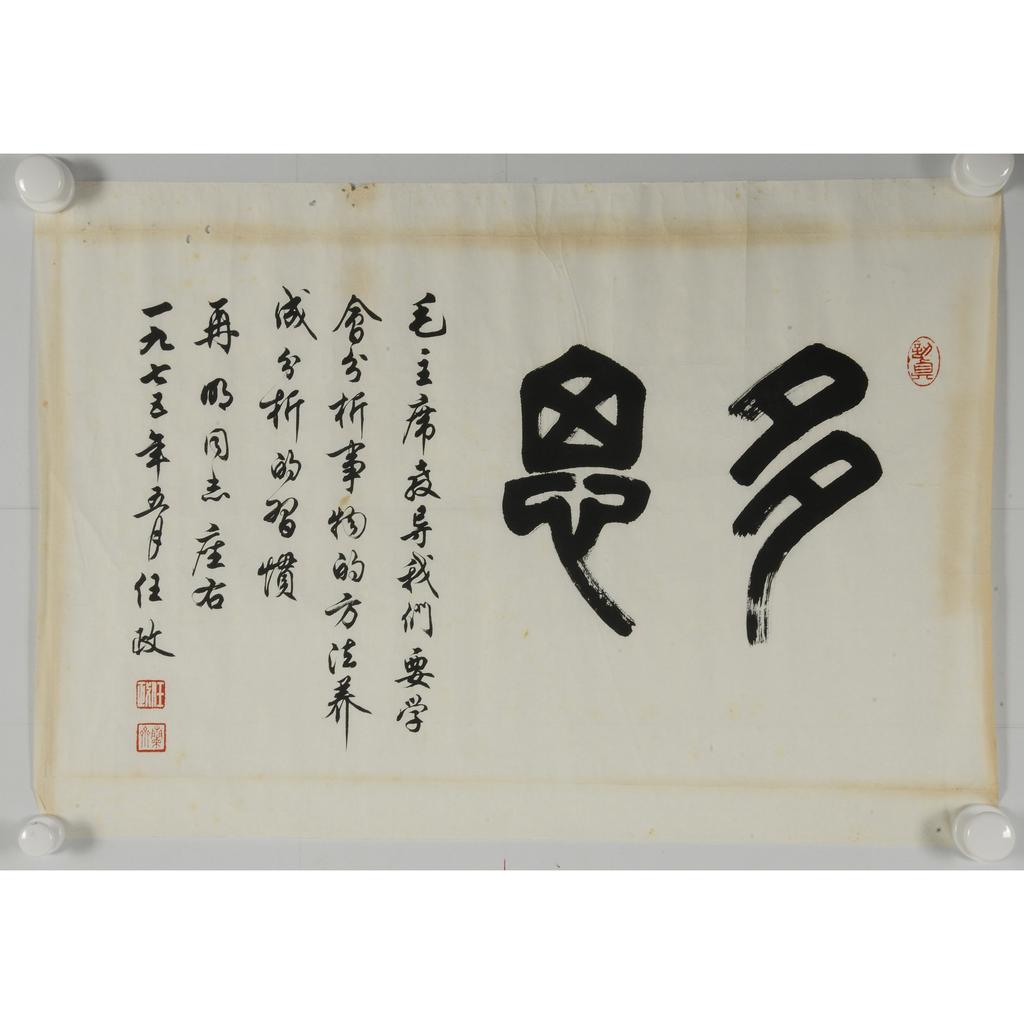 多思
毛主席教导我們要学
會分析事物的方法养
成分析的習慣
再明同志座右
一九七五年五月任政
任政